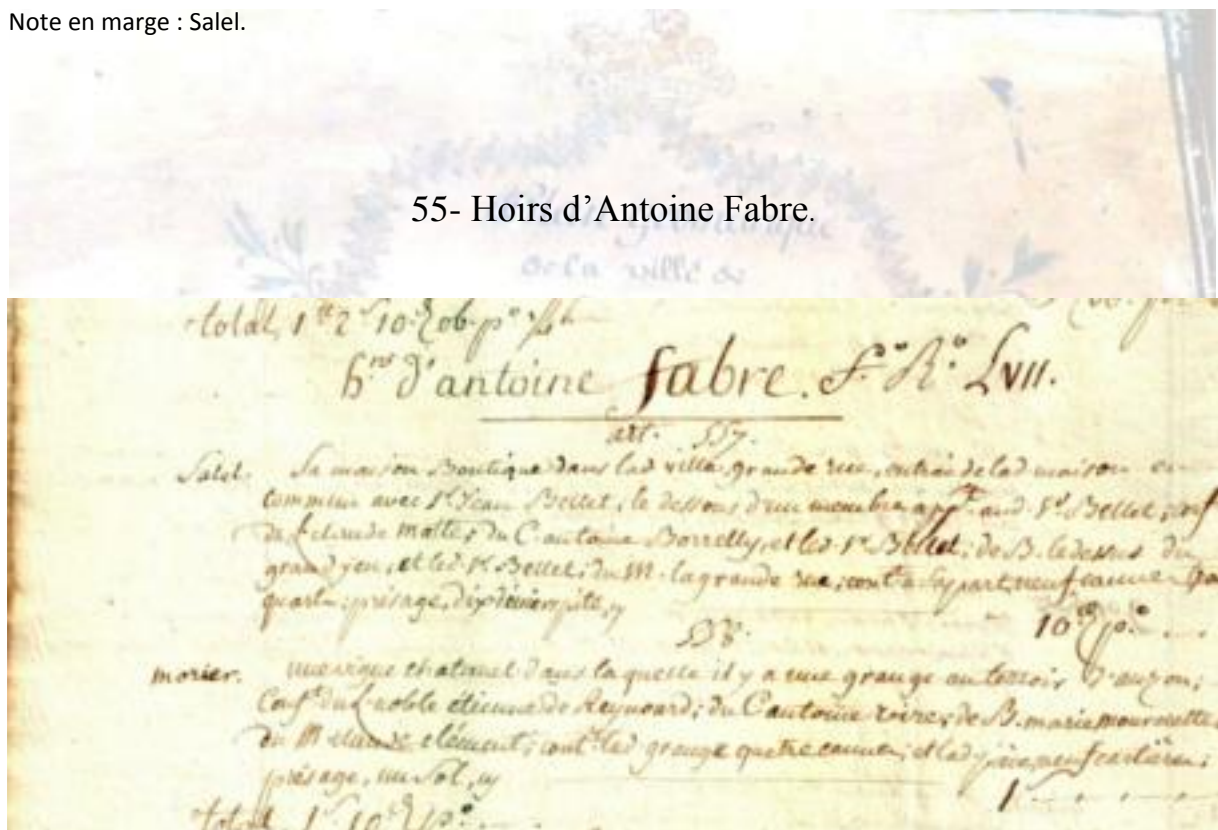 Note en marge : Salel.
55- Hoirs d’Antoine Fabre.
de la ville de
total, 1
h.rs d'antoine fabre. f.° R.° Lvii.
art. 557.
Salel. Sa maison Boutique dans lad. ville, grande rue, entrée de lad maison en
commun avec s.r Jean Bellet, le dessous d'un membre app.t aud. s.r Bellet, conf
du claude motte, du C. antoine Borrelly, et led. s.r Bellet; de B. le dessus du
grand jeu, et led. s.r Bellet; du M. la grande rue; cont. sa part, neuf cannes
quarts; présage, dix deniers pite,
558.
10 p.
morier. une vigne chatanet dans laquelle il y a une grange au terroir d'auzon;
Conf.t du noble étienne de Reynoard; du C antoine vire; de B. marie mournette
du M claude clément; cont. lad grange quatre cannes; et lad neuf cartières;
présage, un sol,
1
total 1 10